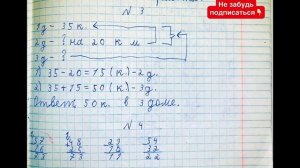 Не забудь
подписаться👇
№ 3
1д – 35 к.
2д – ? на 20 к м
3д – ?
1) 35-20=15 (к.)-2д.
2) 35+15=50 (к.)-3д.
Ответ: 50 к. в 3 доме.
№ 4